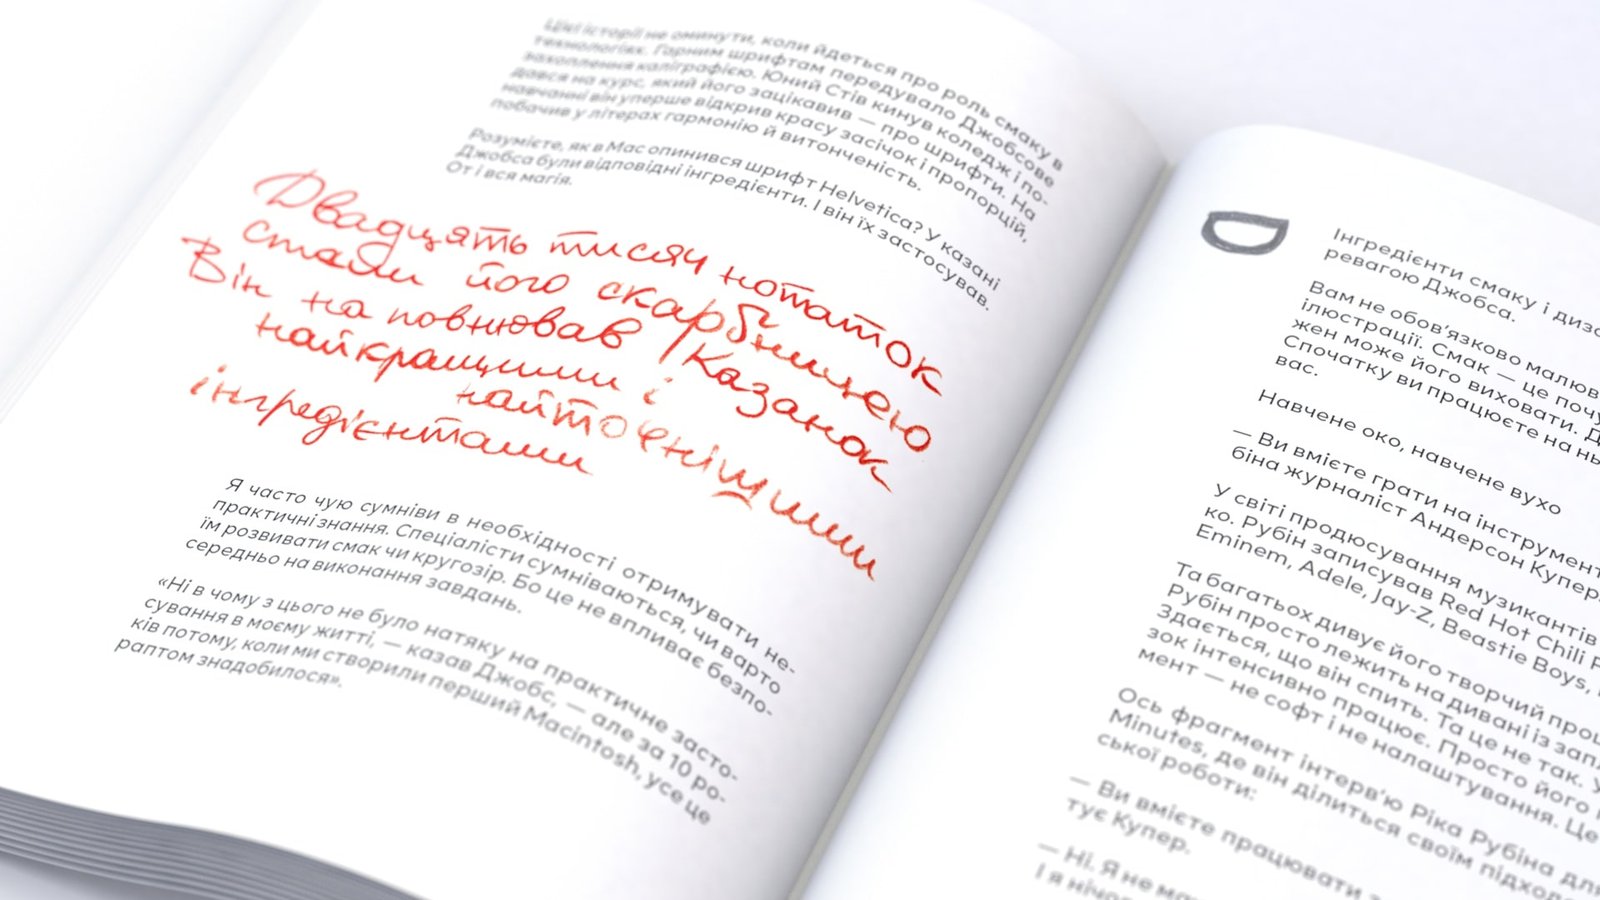 Цієї історії не оминути, коли йдеться про роль смаку в
технологіях. Гарним шрифтам передувало Джобсове
захоплення каліграфією. Юний Стів кинув коледж і по-
дався на курс, який його зацікавив — про шрифти. На
навчанні він уперше відкрив красу засічок і пропорцій,
побачив у літерах гармонію й витонченість.
Розумієте, як в Mac опинився шрифт Helvetica? У казані
Джобса були відповідні інгредієнти. І він їх застосував.
От і вся магія.
Двадцять тисяч нотаток
стали його скарбницею
Він наповнював Казанок
найкращими і
найточнішими
інгредієнтами
Я часто чую сумніви в необхідності отримувати не-
практичні знання. Спеціалісти сумніваються, чи варто
їм розвивати смак чи кругозір. Бо це не впливає безпо-
середньо на виконання завдань.
«Ні в чому з цього не було натяку на практичне засто-
сування в моєму житті, — казав Джобс, — але за 10 ро-
ків потому, коли ми створили перший Macintosh, усе це
раптом знадобилося».
Інгредієнти смаку і диза
ревагою Джобса.
Вам не обов'язково малюв
ілюстрації. Смак — це почу
жен може його виховати. Д
Спочатку ви працюєте на нь
вас.
Навчене око, навчене вухо
— Ви вмієте грати на інструмент
біна журналіст Андерсон Купер
У світі продюсування музикантів
ко. Рубін записував Red Hot Chili P
Eminem, Adele, Jay-Z, Beastie Boys,
Та багатьох дивує його творчий проц
Рубін просто лежить на дивані із запл
Здається, що він спить. Та це не так. У
зок інтенсивно працює. Просто його
мент — не софт і не налаштування. Це
Ось фрагмент інтерв'ю Ріка Рубіна дл
Minutes, де він ділиться своїм підход
ської роботи:
— Ви вмієте працювати з
тує Купер.
— Ні. Я не ма
І я нічо